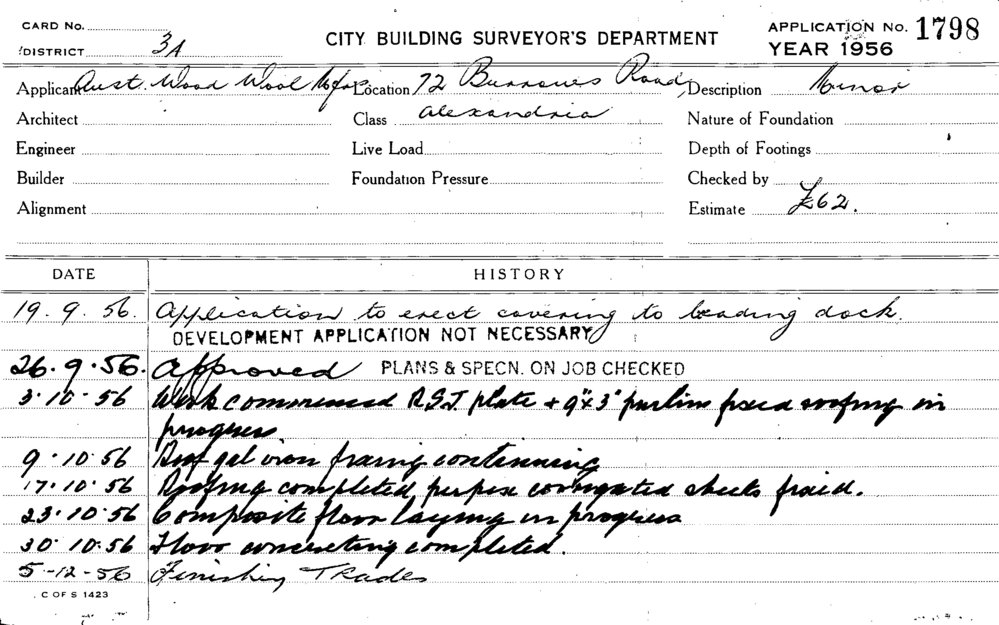 CARD No.
DISTRICT 3A
CITY BUILDING SURVEYOR'S DEPARTMENT
APPLICATION No. 1798
YEAR 1956
Applicant Aust. Wood Wool Mfrs
Location 72 Burrows Road,
Description Minor
Architect
Class Alexandria
Nature of Foundation
Engineer
Live Load
Depth of Footings
Builder
Foundation Pressure
Checked by
Alignment
Estimate £62.
DATE HISTORY
19.9.56. Application to erect covering to loading dock.
DEVELOPMENT APPLICATION NOT NECESSARY
26.9.56. Approved PLANS & SPECN. ON JOB CHECKED
3.10.56 Work commenced R.S.J. plate + 9"x3" purlins fixed roofing in
progress
9.10.56 Roof gal iron fixing continuing
17.10.56 Roofing completed, perpex corrugated sheets fixed.
23.10.56 Composite floor laying in progress
30.10.56 Floor concreting completed.
5-12-56 Finishing Trades
C OF S 1423